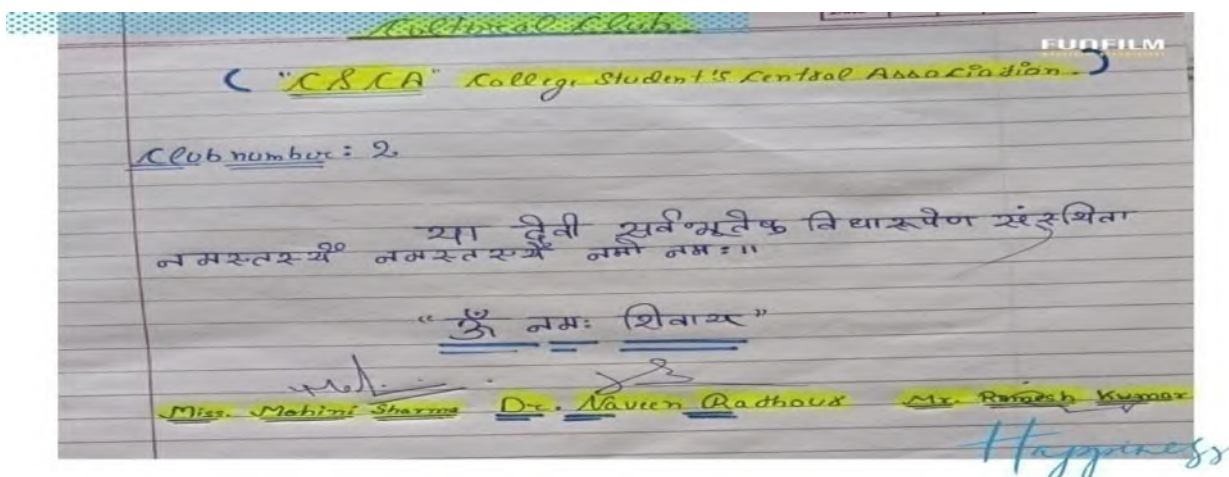 Cultural Club
FUNFILM
( "CSCA" College Student's Central Association )
Club number: 2
या देवी सर्वभूतेषु विधारूपेण संस्थिता
नमस्तस्यै नमस्तस्यै नमो नमः॥
"ॐ नमः शिवाय"
Miss. Mohini Sharma Dr. Naveen Rathour Mr. Ramesh Kumar
Happiness